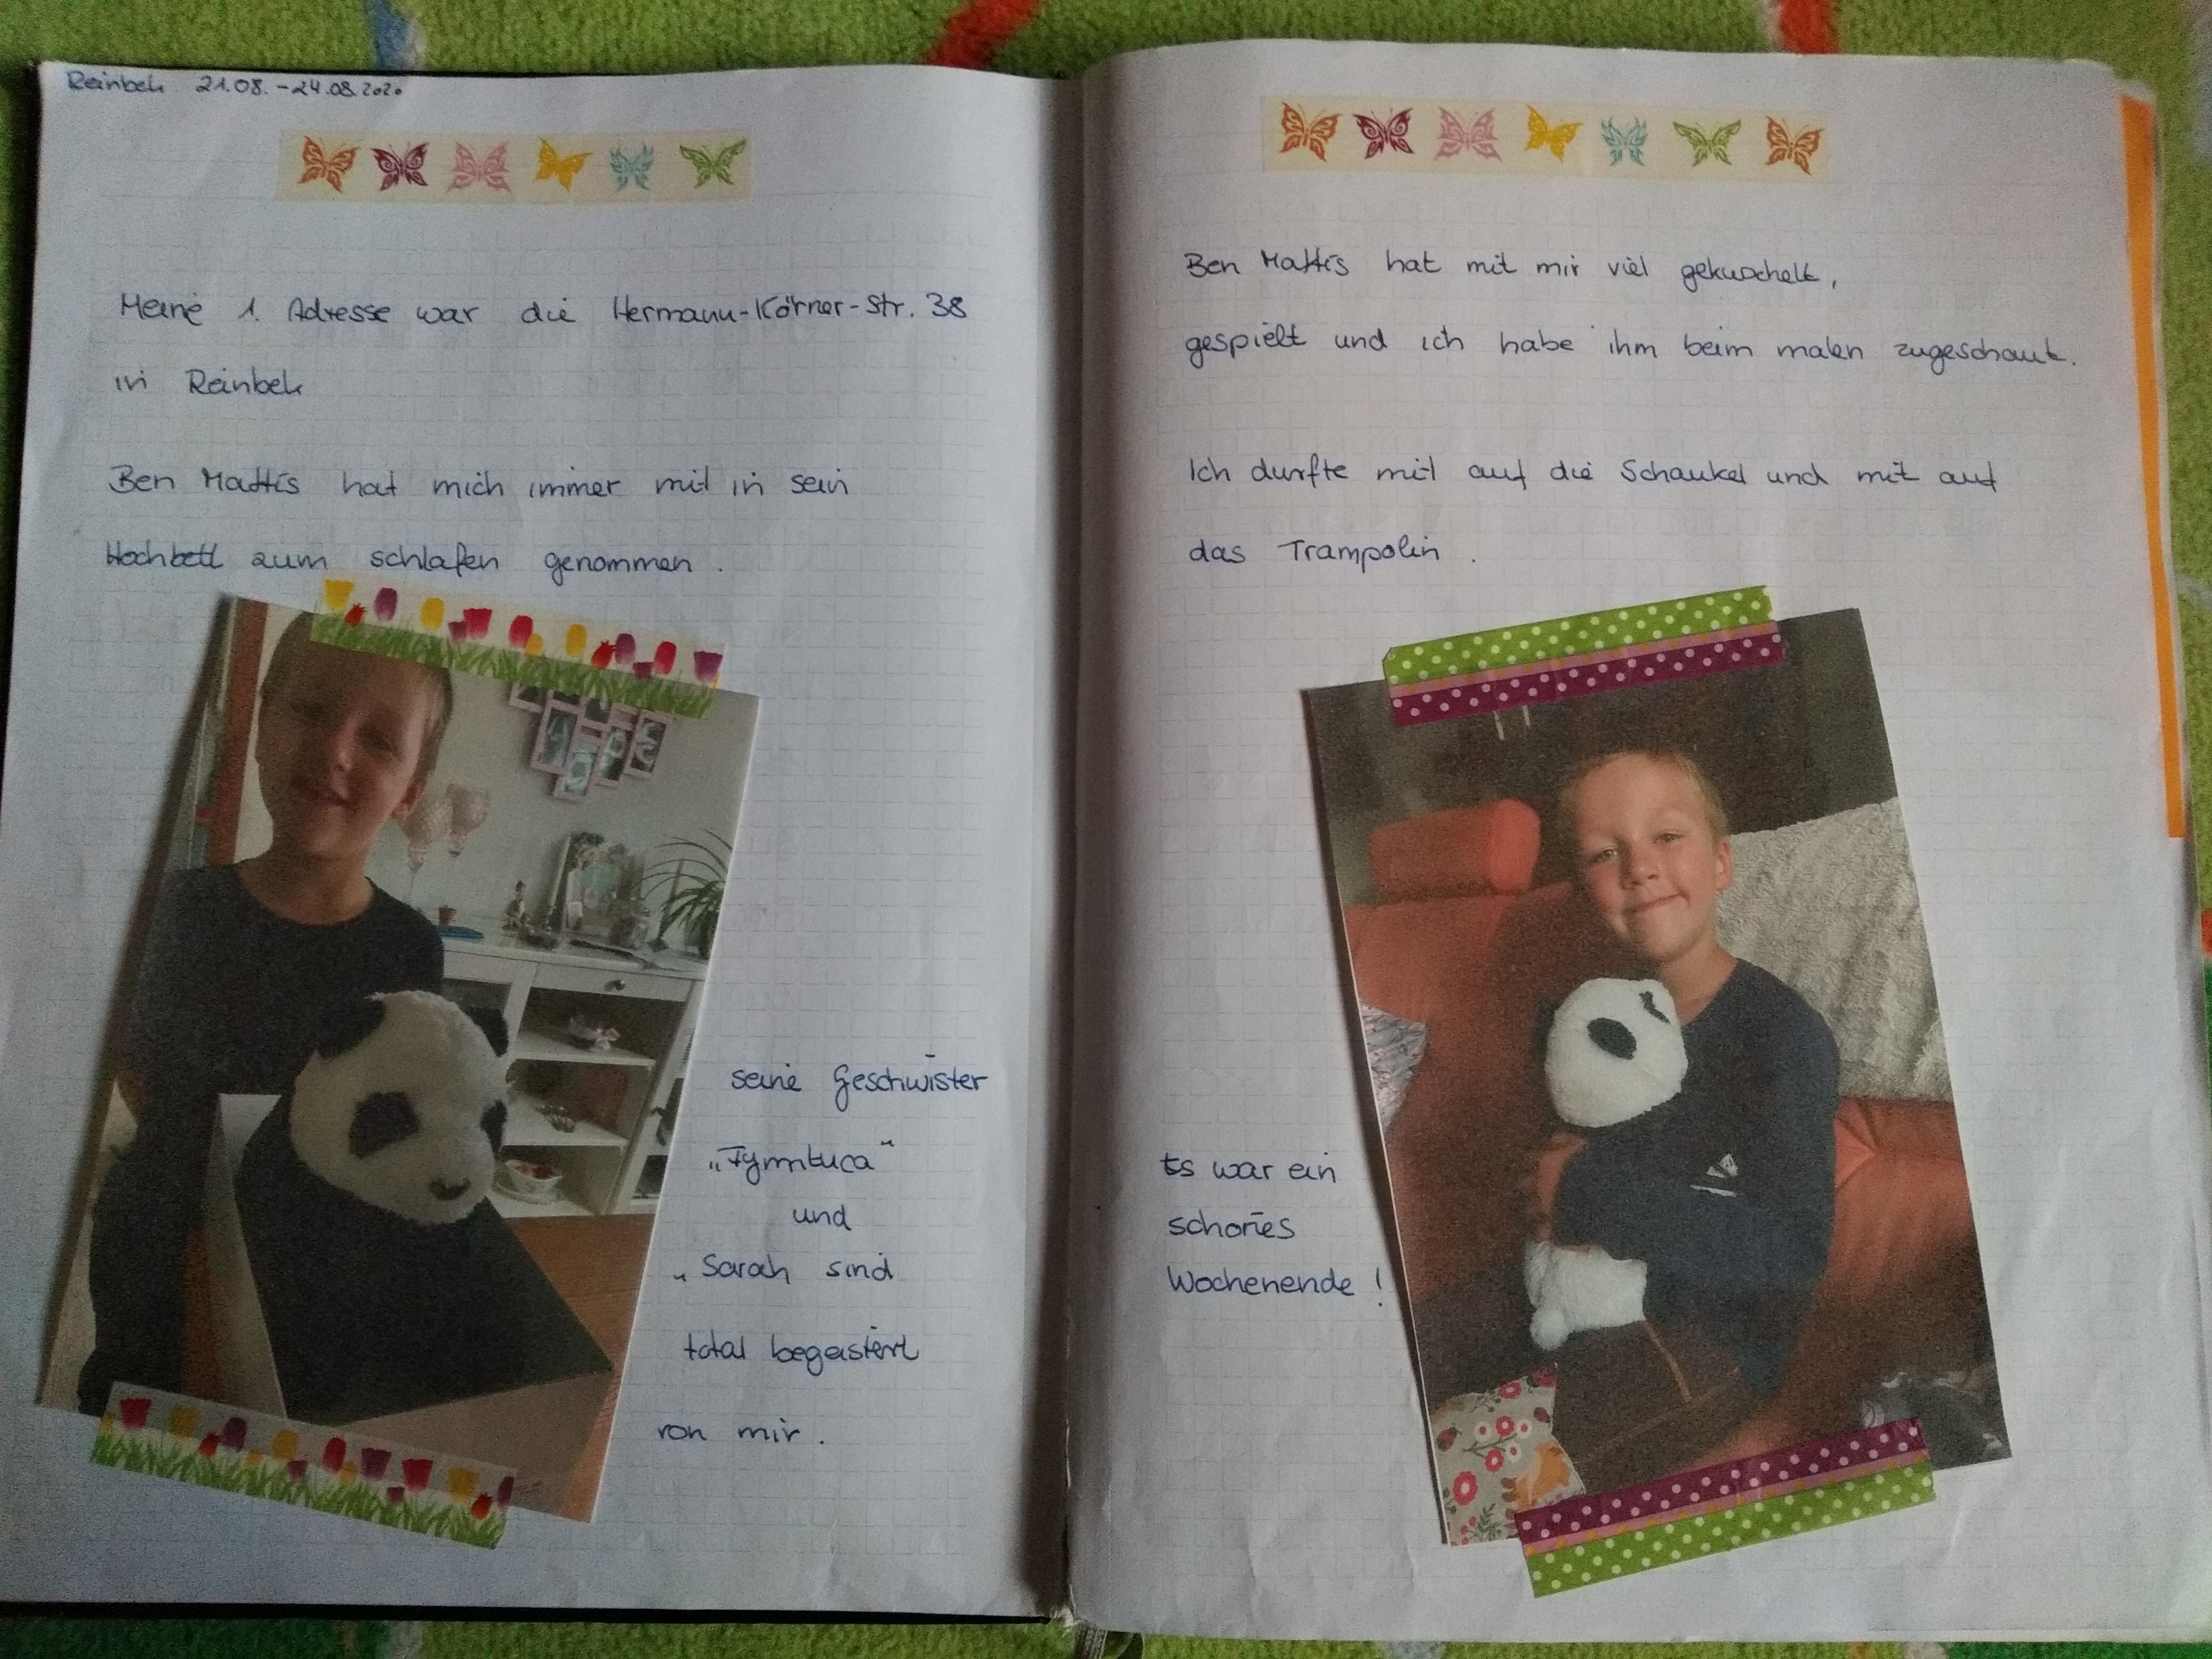 Reinbek 21.08. - 24.08.2020
Meine 1. Adresse war die Hermann-Körner-Str. 38
in Reinbek
Ben Mattis hat mich immer mit in sein
Hochbett zum schlafen genommen.
seine Geschwister
und
„Sarah sind
total begeistert
von mir.
Ben Mattis hat mit mir viel gekuschelt,
gespielt und ich habe ihm beim malen zugeschaut.
Ich durfte mit auf die Schaukel und mit auf
das Trampolin.
Es war ein
schönes
Wochenende!